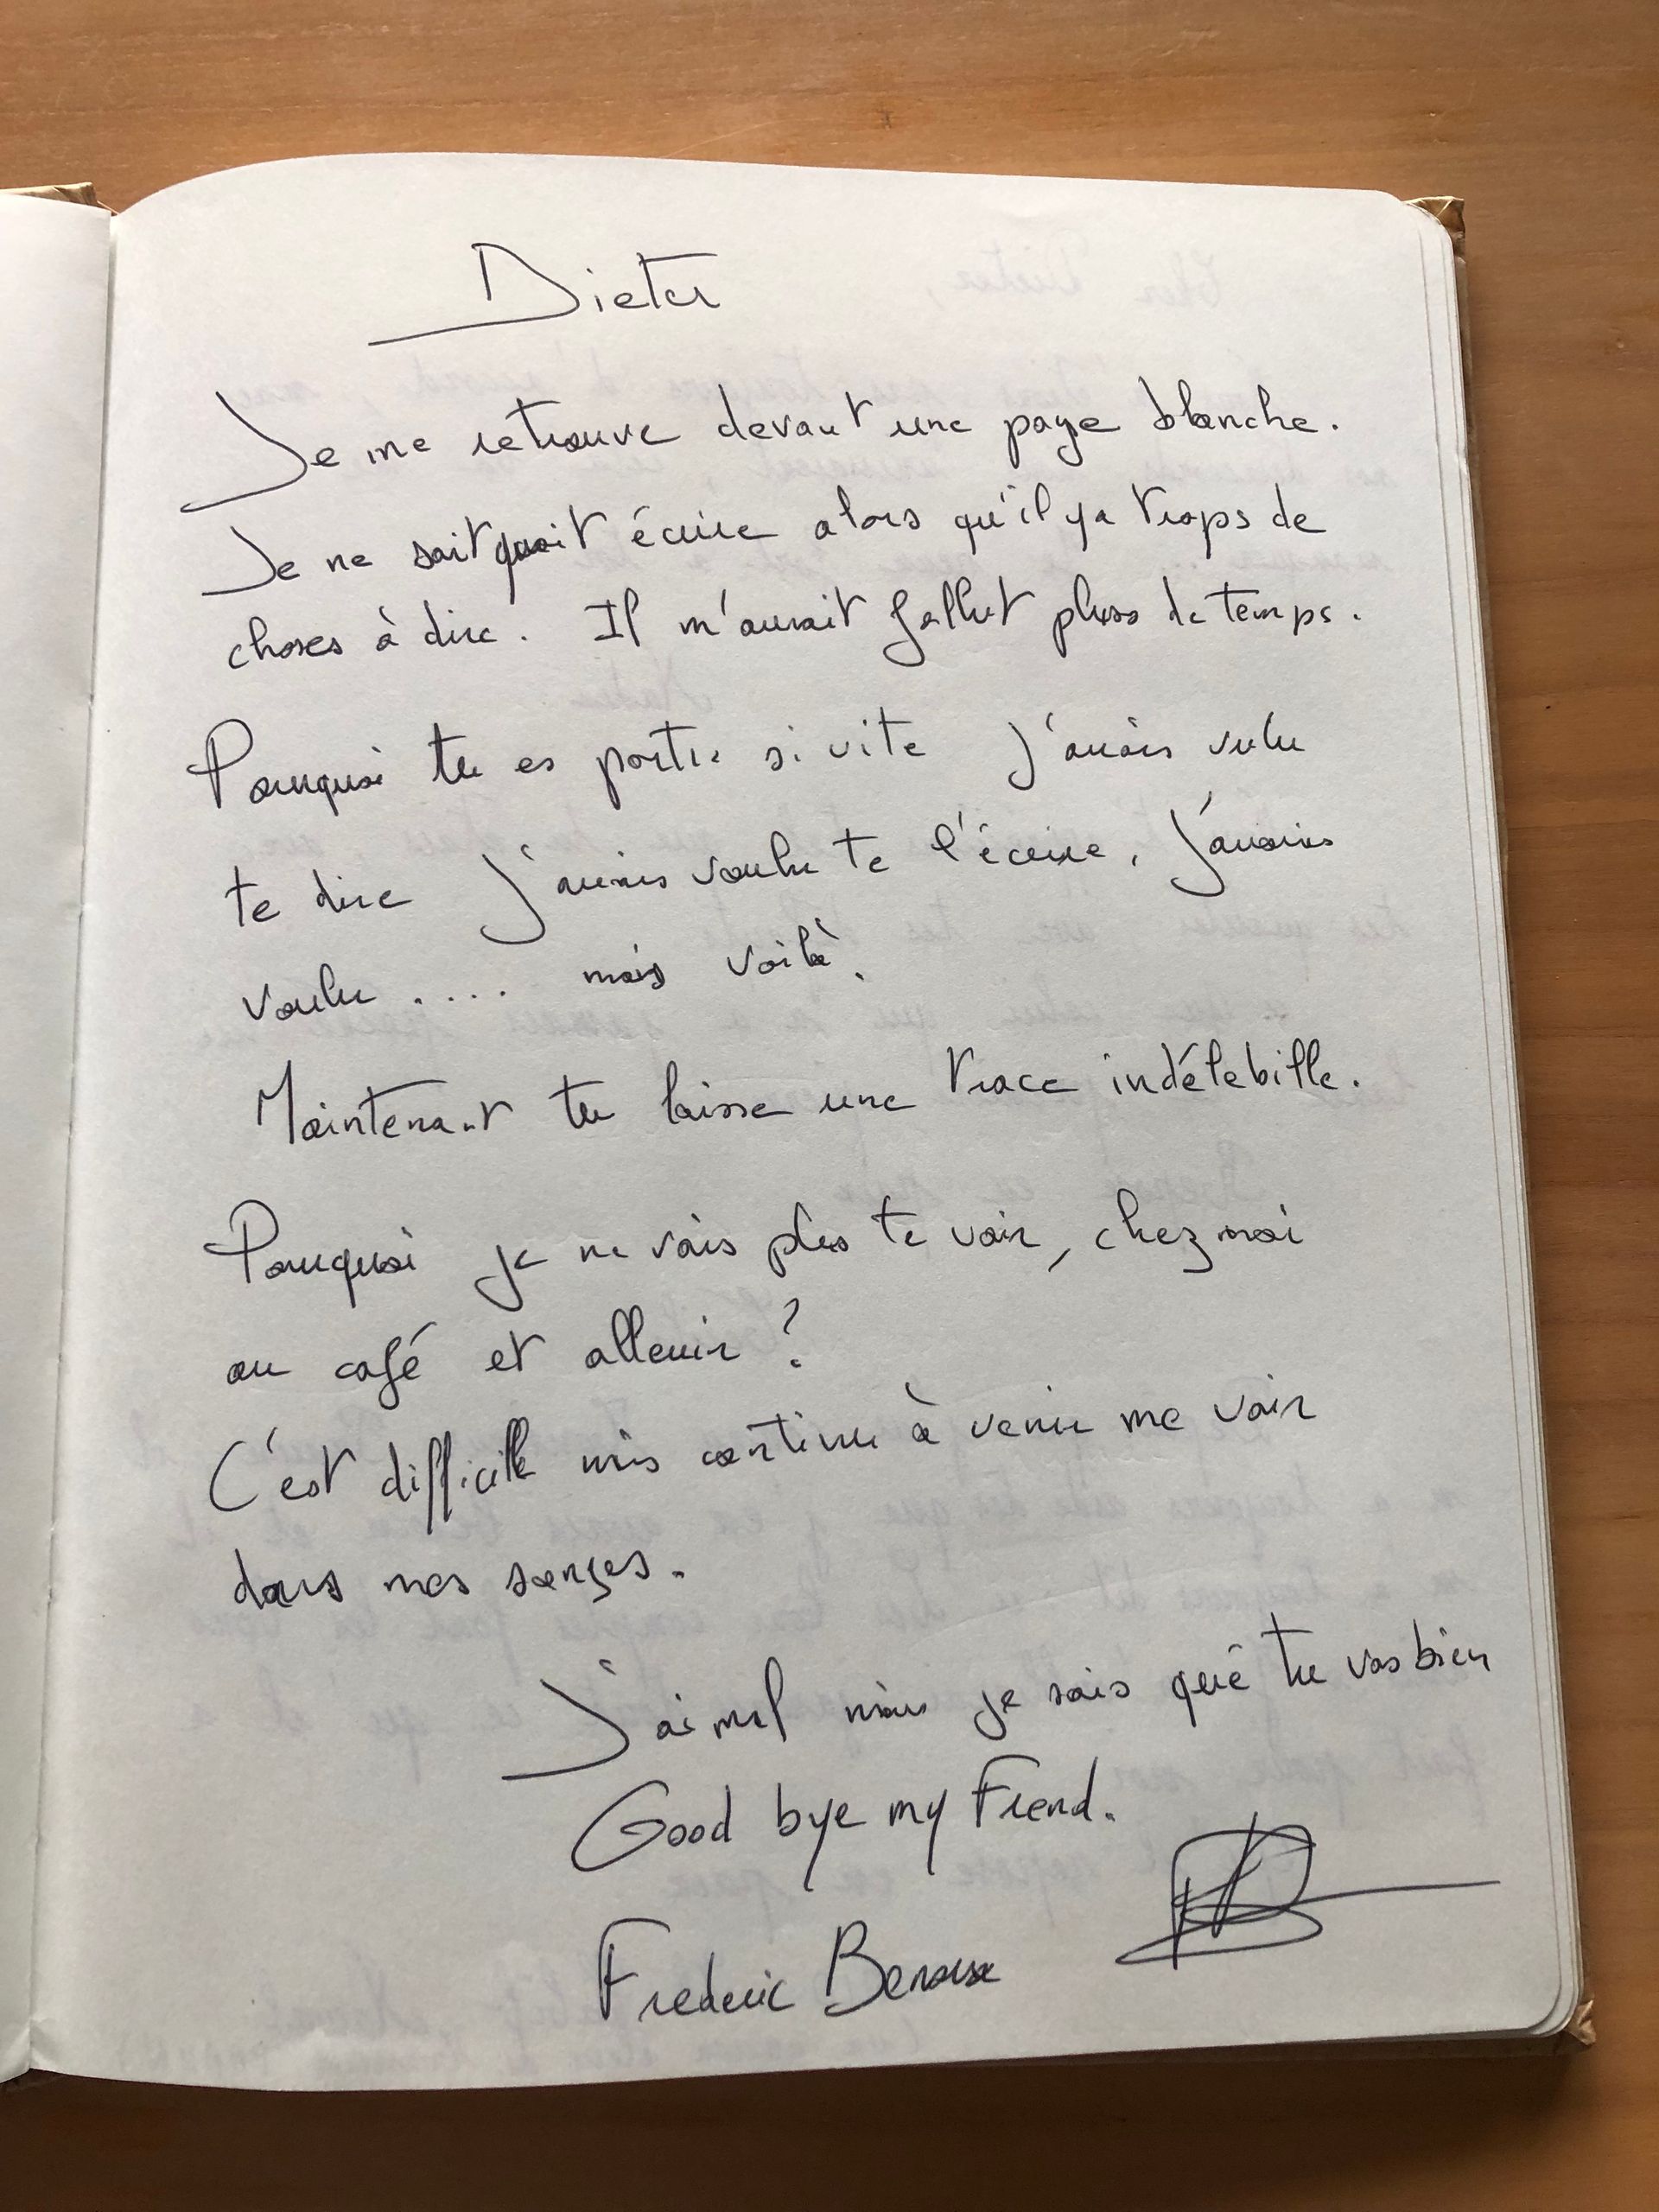 Dieter
Je me retrouve devant une page blanche.
Je ne sait quoit écrire alors qu'il ya trops de
choses à dire. Il m'aurait fallut pluss de temps.
Pourquoi tu es partie si vite J'aurais vulu
te dire J'aurais voulu te l'écrire, J'aurais
voulu .... mais voilà.
Maintenant tu laisse une trace indélebille.
Pourquoi je ne vais plus te voir, chez moi
au café et alleuir ?
C'est difficille mis continu à venir me voir
dans mes songes.
J'ai mal mais je sais que tu vas bien
Good bye my Friend.
Frederic